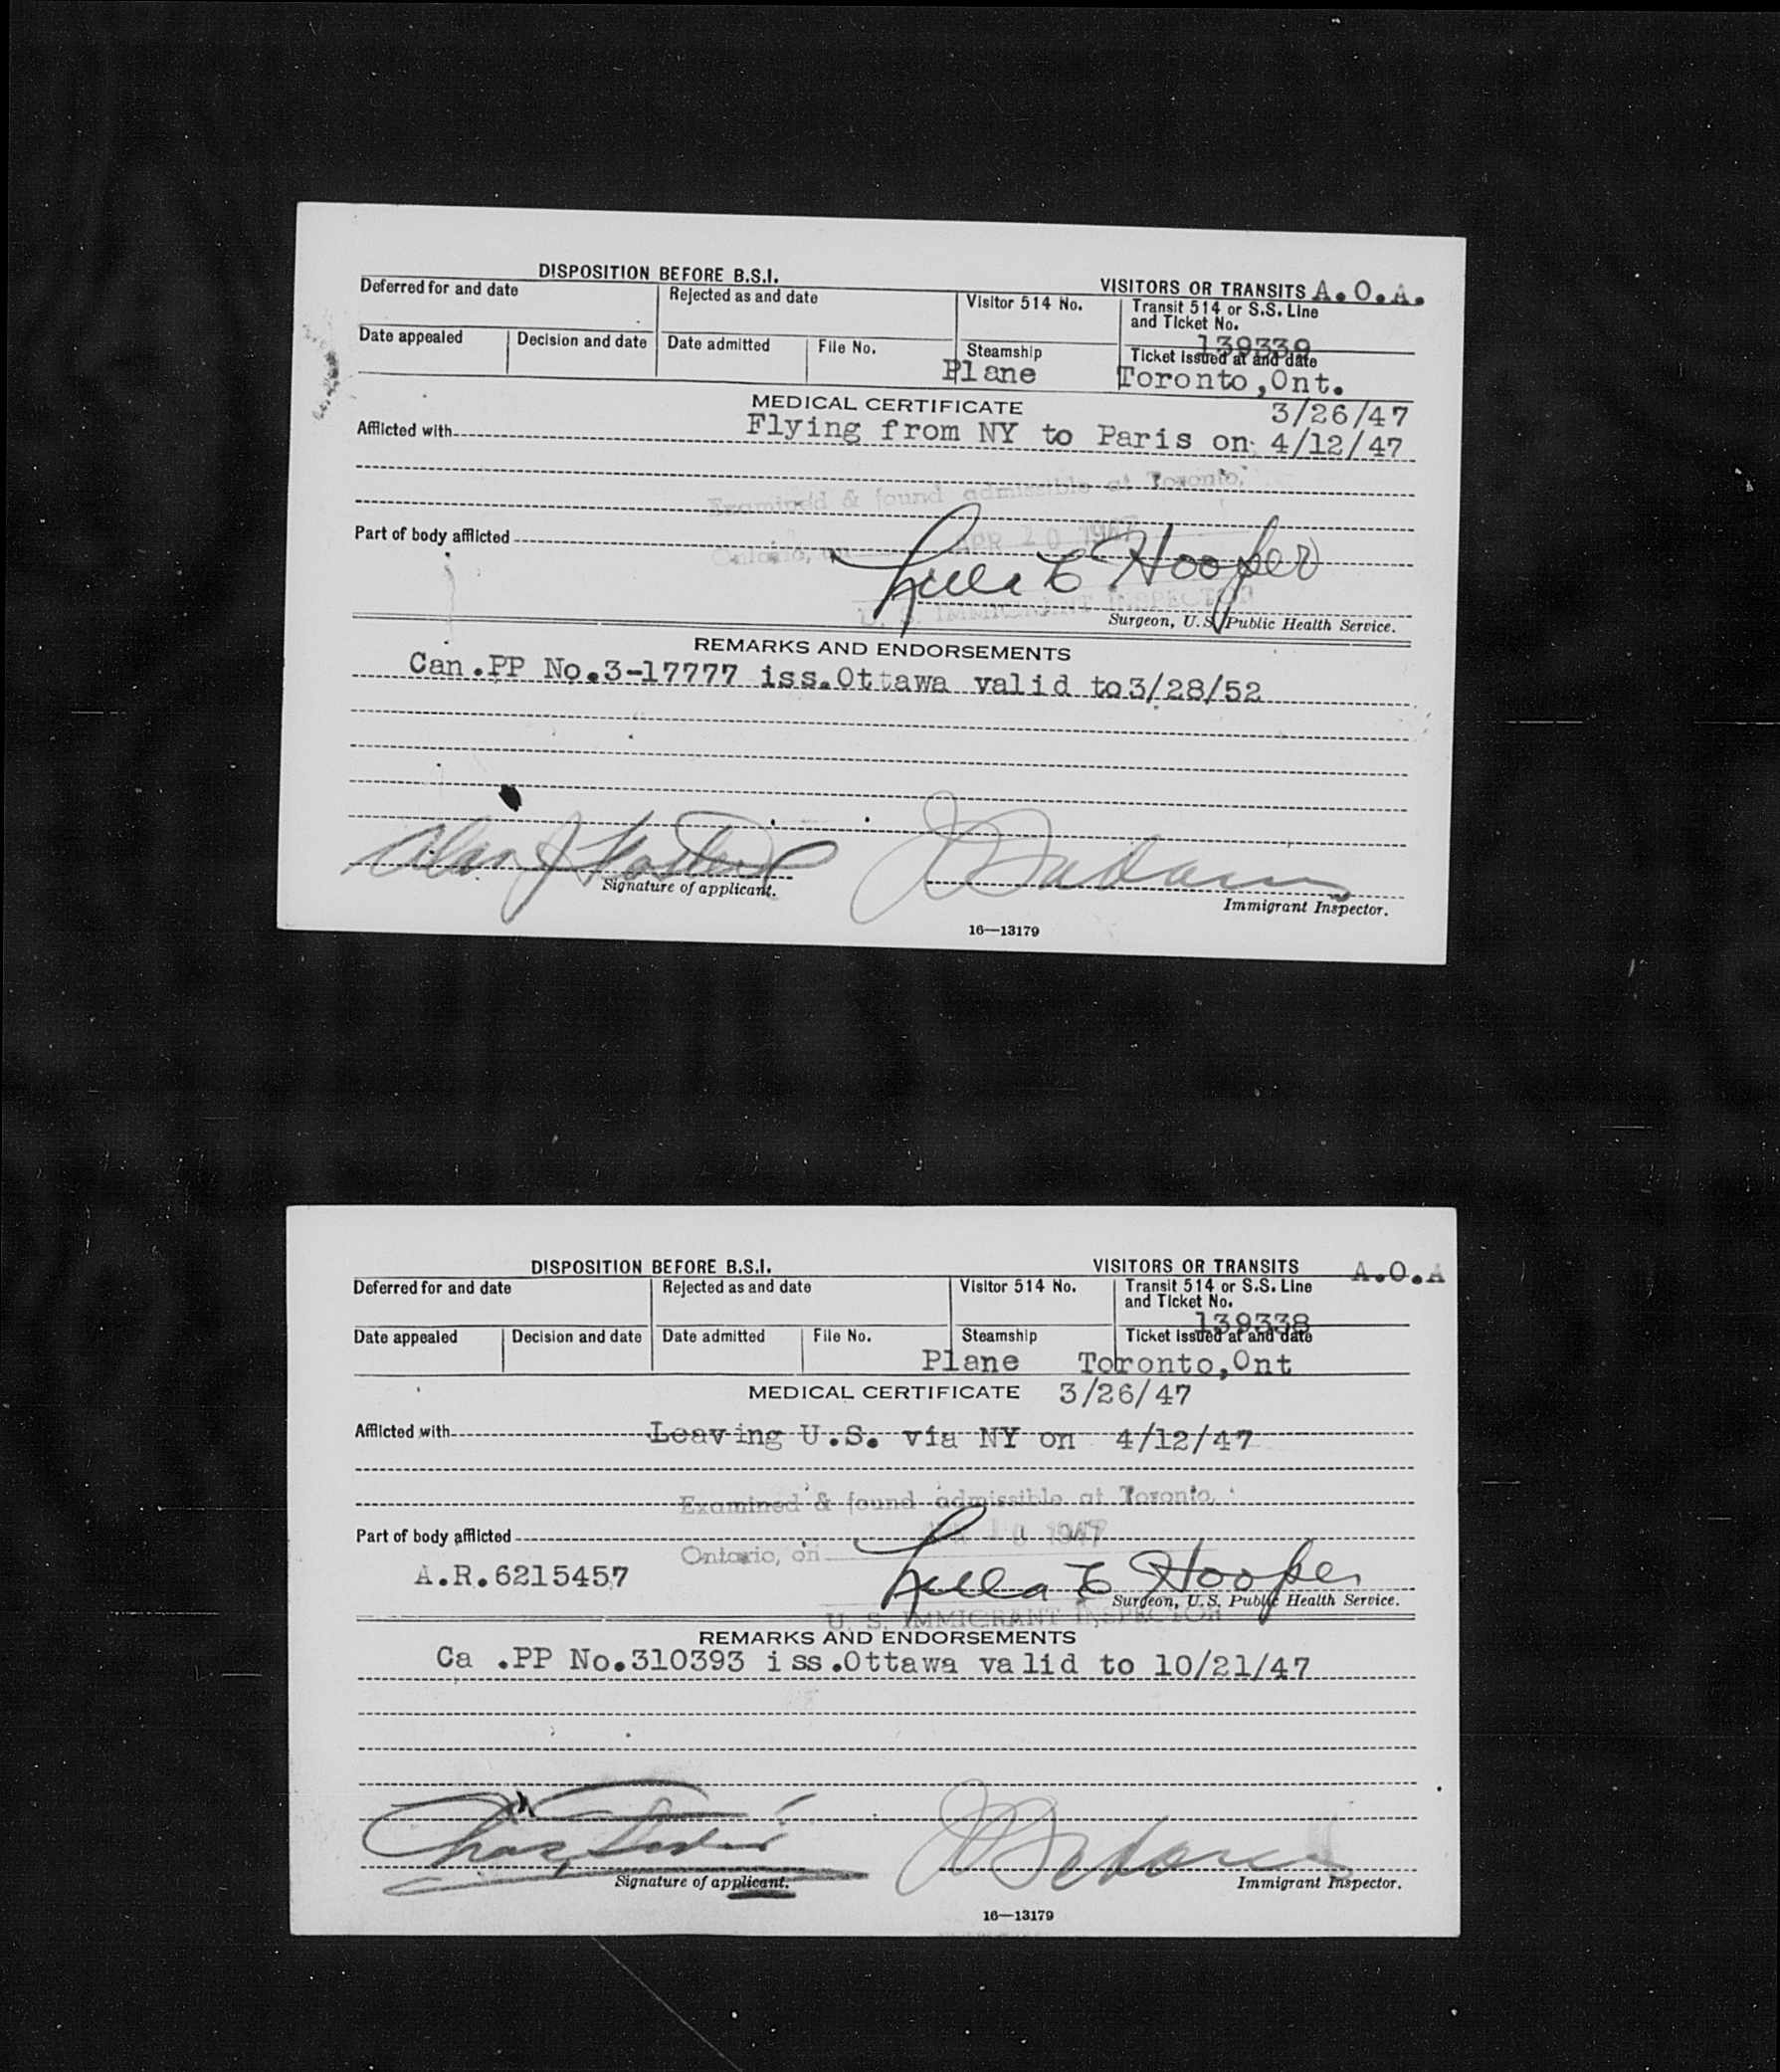 DISPOSITION BEFORE B.S.I.
VISITORS OR TRANSITS A.O.A.
Deferred for and date
Rejected as and date
Visitor 514 No.
Transit 514 or S.S. Line
and Ticket No.
139339
Date appealed
Decision and date
Date admitted
File No.
Steamship
Ticket issued at and date
Plane
Toronto,Ont.
MEDICAL CERTIFICATE
3/26/47
Afflicted with
Flying from NY to Paris on 4/12/47
Examined & found admissible at Toronto,
Part of body afflicted
Ontario, on APR 10 1947
Lulla E Hooper
U. S. IMMIGRANT INSPECTOR
Surgeon, U.S. Public Health Service.
REMARKS AND ENDORSEMENTS
Can.PP No.3-17777 iss.Ottawa valid to3/28/52
Signature of applicant.
Immigrant Inspector.
16—13179
DISPOSITION BEFORE B.S.I.
VISITORS OR TRANSITS
A.O.A
Deferred for and date
Rejected as and date
Visitor 514 No.
Transit 514 or S.S. Line
and Ticket No.
139338
Date appealed
Decision and date
Date admitted
File No.
Steamship
Ticket issued at and date
Plane
Toronto,Ont
MEDICAL CERTIFICATE
3/26/47
Afflicted with
Leaving U.S. via NY on 4/12/47
Examined & found admissible at Toronto,
Part of body afflicted
Ontario, on 1947
A.R.6215457
Lulla E Hooper
Surgeon, U.S. Public Health Service.
U. S. IMMIGRANT INSPECTOR
REMARKS AND ENDORSEMENTS
Ca .PP No.310393 iss.Ottawa valid to 10/21/47
Signature of applicant.
Immigrant Inspector.
16—13179